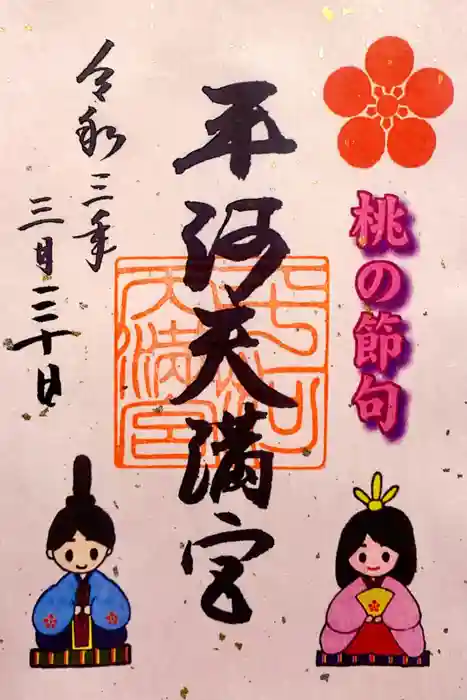 桃の節句
平河天満宮
平河
天満宮
令和三年
三月二十日